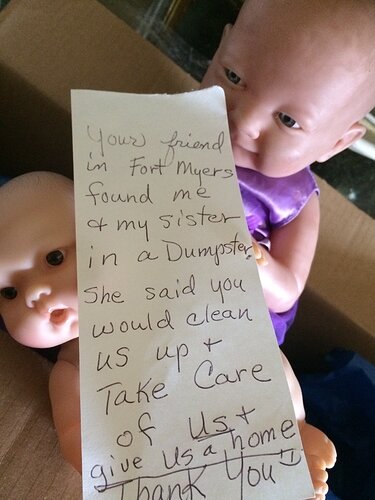 Your friend
in Fort Myers
found me
& my sister
in a Dumpster
She said you
would clean
us up +
Take Care
of us +
give us a home
Thank You